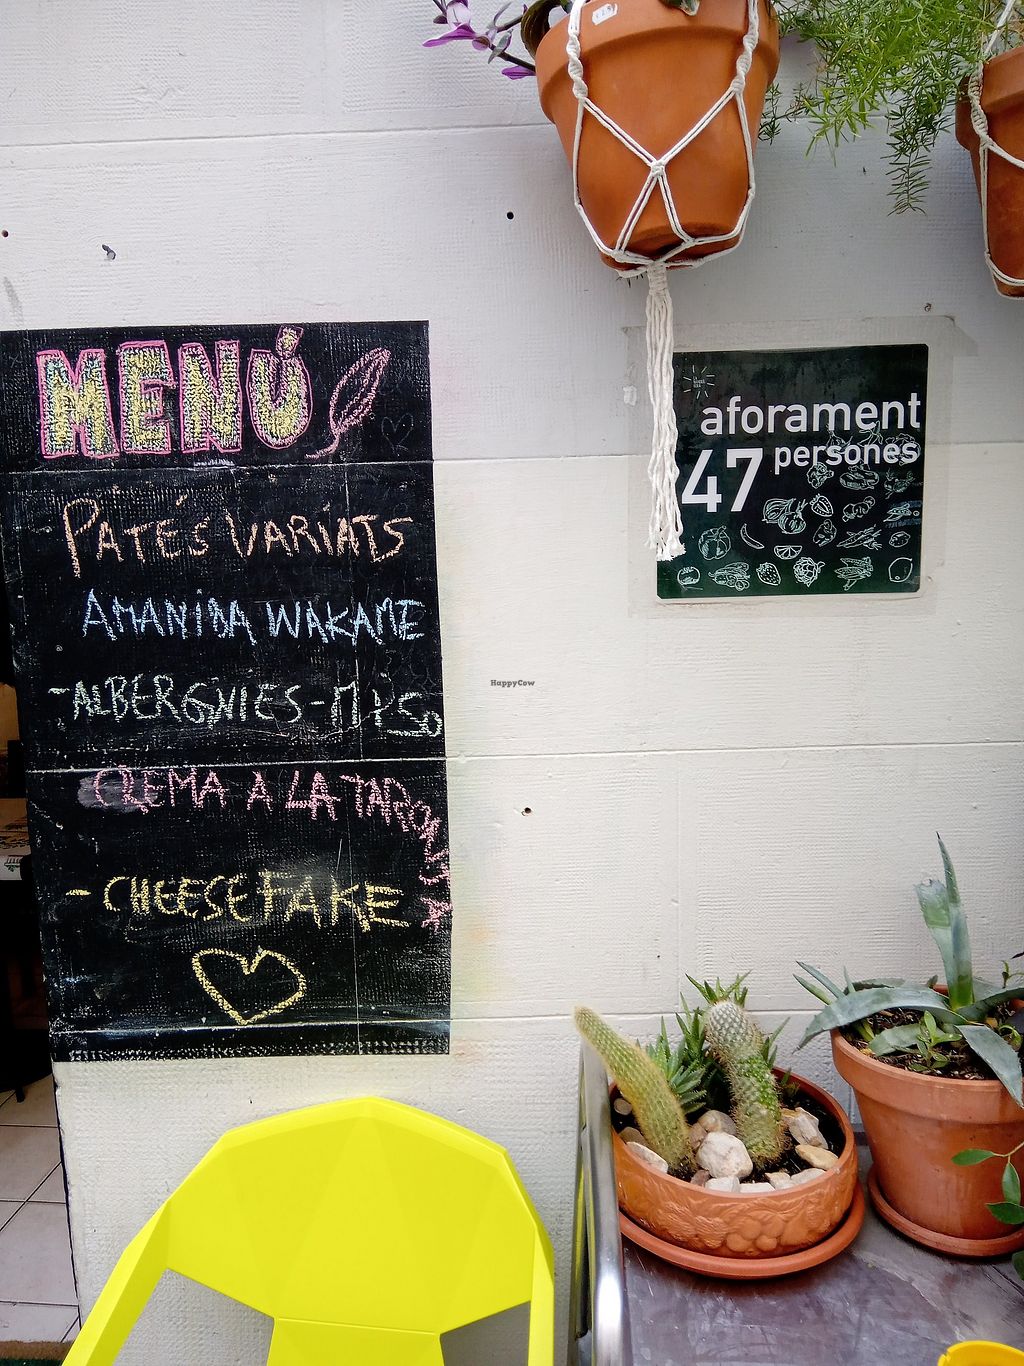 MENÚ
PATÉS VARIATS
AMANIDA WAKAME
-ALBERGNIES-MISO
CREMA A LA TARONJA
-CHEESEFAKE
aforament
47 persones
HappyCow